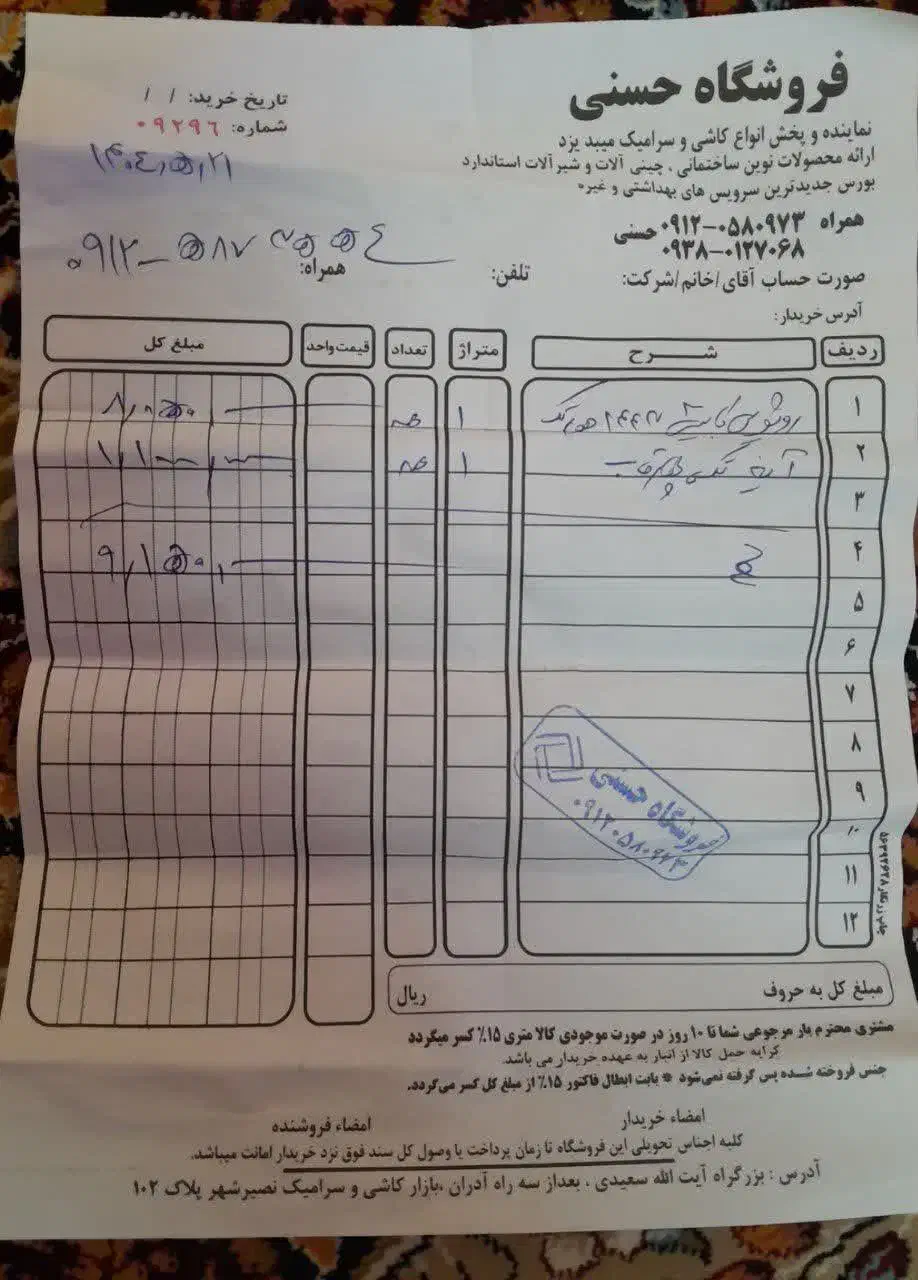 فروشگاه حسنی
نماینده و پخش انواع کاشی و سرامیک میبد یزد
ارائه محصولات نوین ساختمانی ، چینی آلات و شیرآلات استاندارد
بورس جدیدترین سرویس های بهداشتی و غیره
تاریخ خرید: / /
شماره: ۰۹۲۹۶
۱۴۰۴/۵/۲۱
همراه ۰۹۱۲-۰۵۸۰۹۷۳ حسنی
۰۹۳۸-۰۱۲۷۰۶۸
صورت حساب آقای/خانم/شرکت: تلفن: همراه:
آدرس خریدار:
ردیف شرح متراژ تعداد قیمت واحد مبلغ کل
۱ روشویی کابینتی ۱ عدد
۲ آینه ۱ عدد
۳
۴
۵
۶
۷
۸
۹
۱۰
۱۱
۱۲
فروشگاه حسنی
۰۹۱۲۰۵۸۰۹۷۳
مبلغ کل به حروف ریال
مشتری محترم بار مرجوعی شما تا ۱۰ روز در صورت موجودی کالا متری ۱۵٪ کسر میگردد
کرایه حمل کالا از انبار به عهده خریدار می باشد.
جنس فروخته شده پس گرفته نمی‌شود * بابت ابطال فاکتور ۱۵٪ از مبلغ کل کسر می‌گردد.
امضاء خریدار امضاء فروشنده
کلیه اجناس تحویلی این فروشگاه تا زمان پرداخت یا وصول کل سند فوق نزد خریدار امانت میباشد.
آدرس : بزرگراه آیت الله سعیدی ، بعداز سه راه آدران ،بازار کاشی و سرامیک نصیرشهر پلاک ۱۰۲